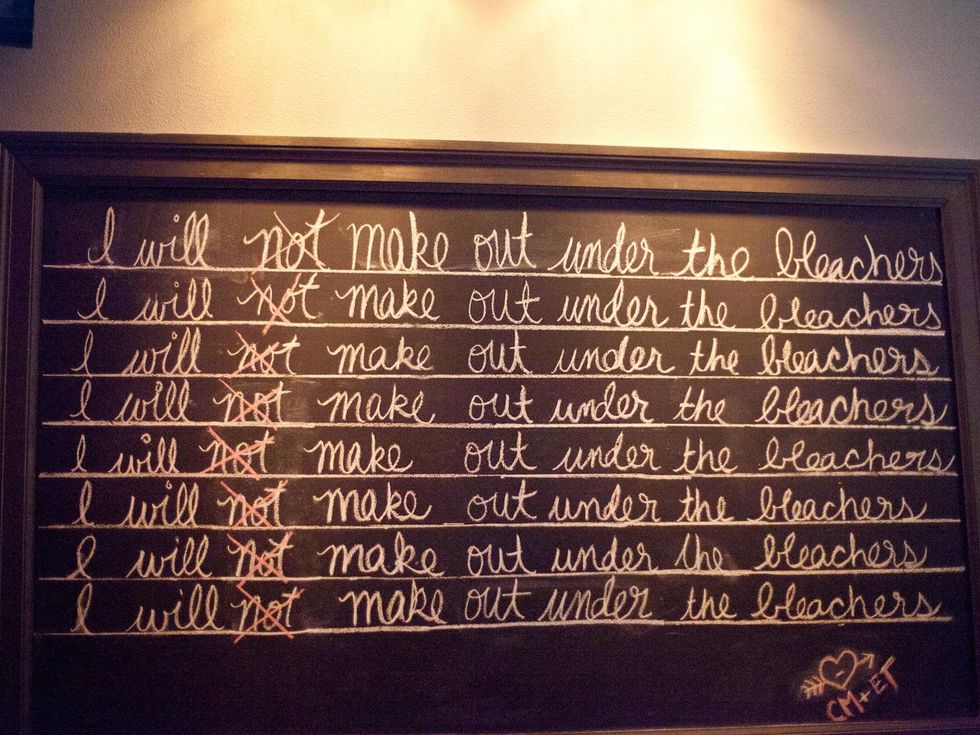 I will not make out under the bleachers
I will not make out under the bleachers
I will not make out under the bleachers
I will not make out under the bleachers
I will not make out under the bleachers
I will not make out under the bleachers
I will not make out under the bleachers
I will not make out under the bleachers
CM+ET